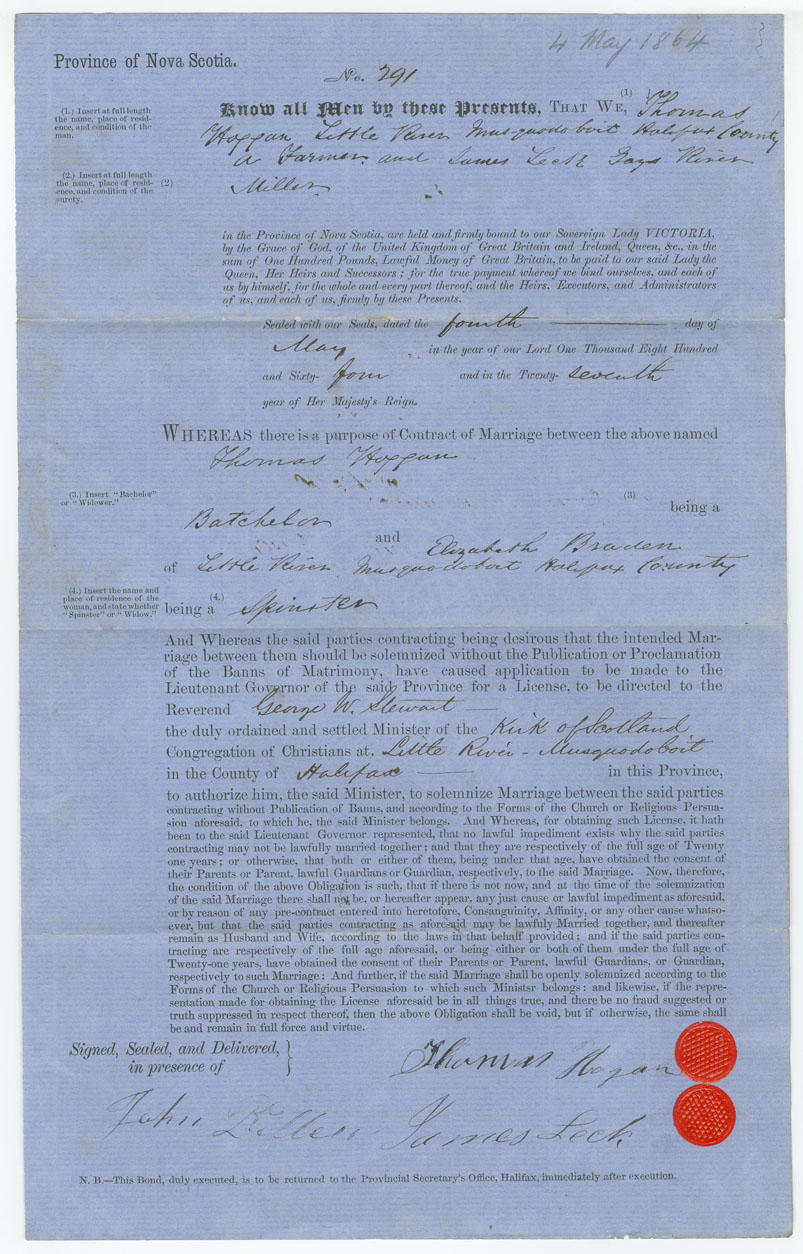 4 May 1864
Province of Nova Scotia.
No. 291
(1.) Insert at full length
the name, place of resid-
ence, and condition of the
man.
(1)
Know all Men by these Presents, THAT WE, Thomas
Hoggan Little River Musquodoboit Halifax County
a Farmer and James Leck Gays River
(2.) Insert at full length
the name, place of resid-
ence, and condition of the
surety.
(2)
Miller
in the Province of Nova Scotia, are held and firmly bound to our Sovereign Lady VICTORIA,
by the Grace of God, of the United Kingdom of Great Britain and Ireland, Queen, &c., in the
sum of One Hundred Pounds, Lawful Money of Great Britain, to be paid to our said Lady the
Queen, Her Heirs and Successors; for the true payment whereof we bind ourselves, and each of
us by himself, for the whole and every part thereof, and the Heirs, Executors, and Administrators
of us, and each of us, firmly by these Presents.
Sealed with our Seals, dated the fourth day of
May in the year of our Lord One Thousand Eight Hundred
and Sixty- four and in the Twenty- seventh
year of Her Majesty's Reign.
WHEREAS there is a purpose of Contract of Marriage between the above named
Thomas Hoggan
(3.) Insert "Bachelor"
or "Widower."
(3)
being a
Batchelor
and Elizabeth Braden
of Little River Musquodoboit Halifax County
(4.) Insert the name and
place of residence of the
woman, and state whether
"Spinster" or "Widow."
(4.)
being a Spinster
And Whereas the said parties contracting being desirous that the intended Mar-
riage between them should be solemnized without the Publication or Proclamation
of the Banns of Matrimony, have caused application to be made to the
Lieutenant Governor of the said Province for a License, to be directed to the
Reverend George W. Stewart
the duly ordained and settled Minister of the Kirk of Scotland
Congregation of Christians at Little River - Musquodoboit
in the County of Halifax in this Province,
to authorize him, the said Minister, to solemnize Marriage between the said parties
contracting without Publication of Banns, and according to the Forms of the Church or Religious Persua-
sion aforesaid, to which he, the said Minister belongs. And Whereas, for obtaining such License, it hath
been to the said Lieutenant Governor represented, that no lawful impediment exists why the said parties
contracting may not be lawfully married together; and that they are respectively of the full age of Twenty
one years; or otherwise, that both or either of them, being under that age, have obtained the consent of
their Parents or Parent, lawful Guardians or Guardian, respectively, to the said Marriage. Now, therefore,
the condition of the above Obligation is such, that if there is not now, and at the time of the solemnization
of the said Marriage there shall not be, or hereafter appear, any just cause or lawful impediment as aforesaid,
or by reason of any pre-contract entered into heretofore, Consanguinity, Affinity, or any other cause whatso-
ever, but that the said parties contracting as aforesaid may be lawfuly Married together, and thereafter
remain as Husband and Wife, according to the laws in that behalf provided; and if the said parties con-
tracting are respectively of the full age aforesaid, or being either or both of them under the full age of
Twenty-one years, have obtained the consent of their Parents or Parent, lawful Guardians, or Guardian,
respectively to such Marriage: And further, if the said Marriage shall be openly solemnized according to the
Forms of the Church or Religious Persuasion to which such Ministsr belongs: and likewise, if the repre-
sentation made for obtaining the License aforesaid be in all things true, and there be no fraud suggested or
truth suppressed in respect thereof, then the above Obligation shall be void, but if otherwise, the same shall
be and remain in full force and virtue.
Signed, Sealed, and Delivered,
in presence of
Thomas Hogan
John
James Leck
N. B.—This Bond, duly executed, is to be returned to the Provincial Secretary's Office, Halifax, immediately after execution.